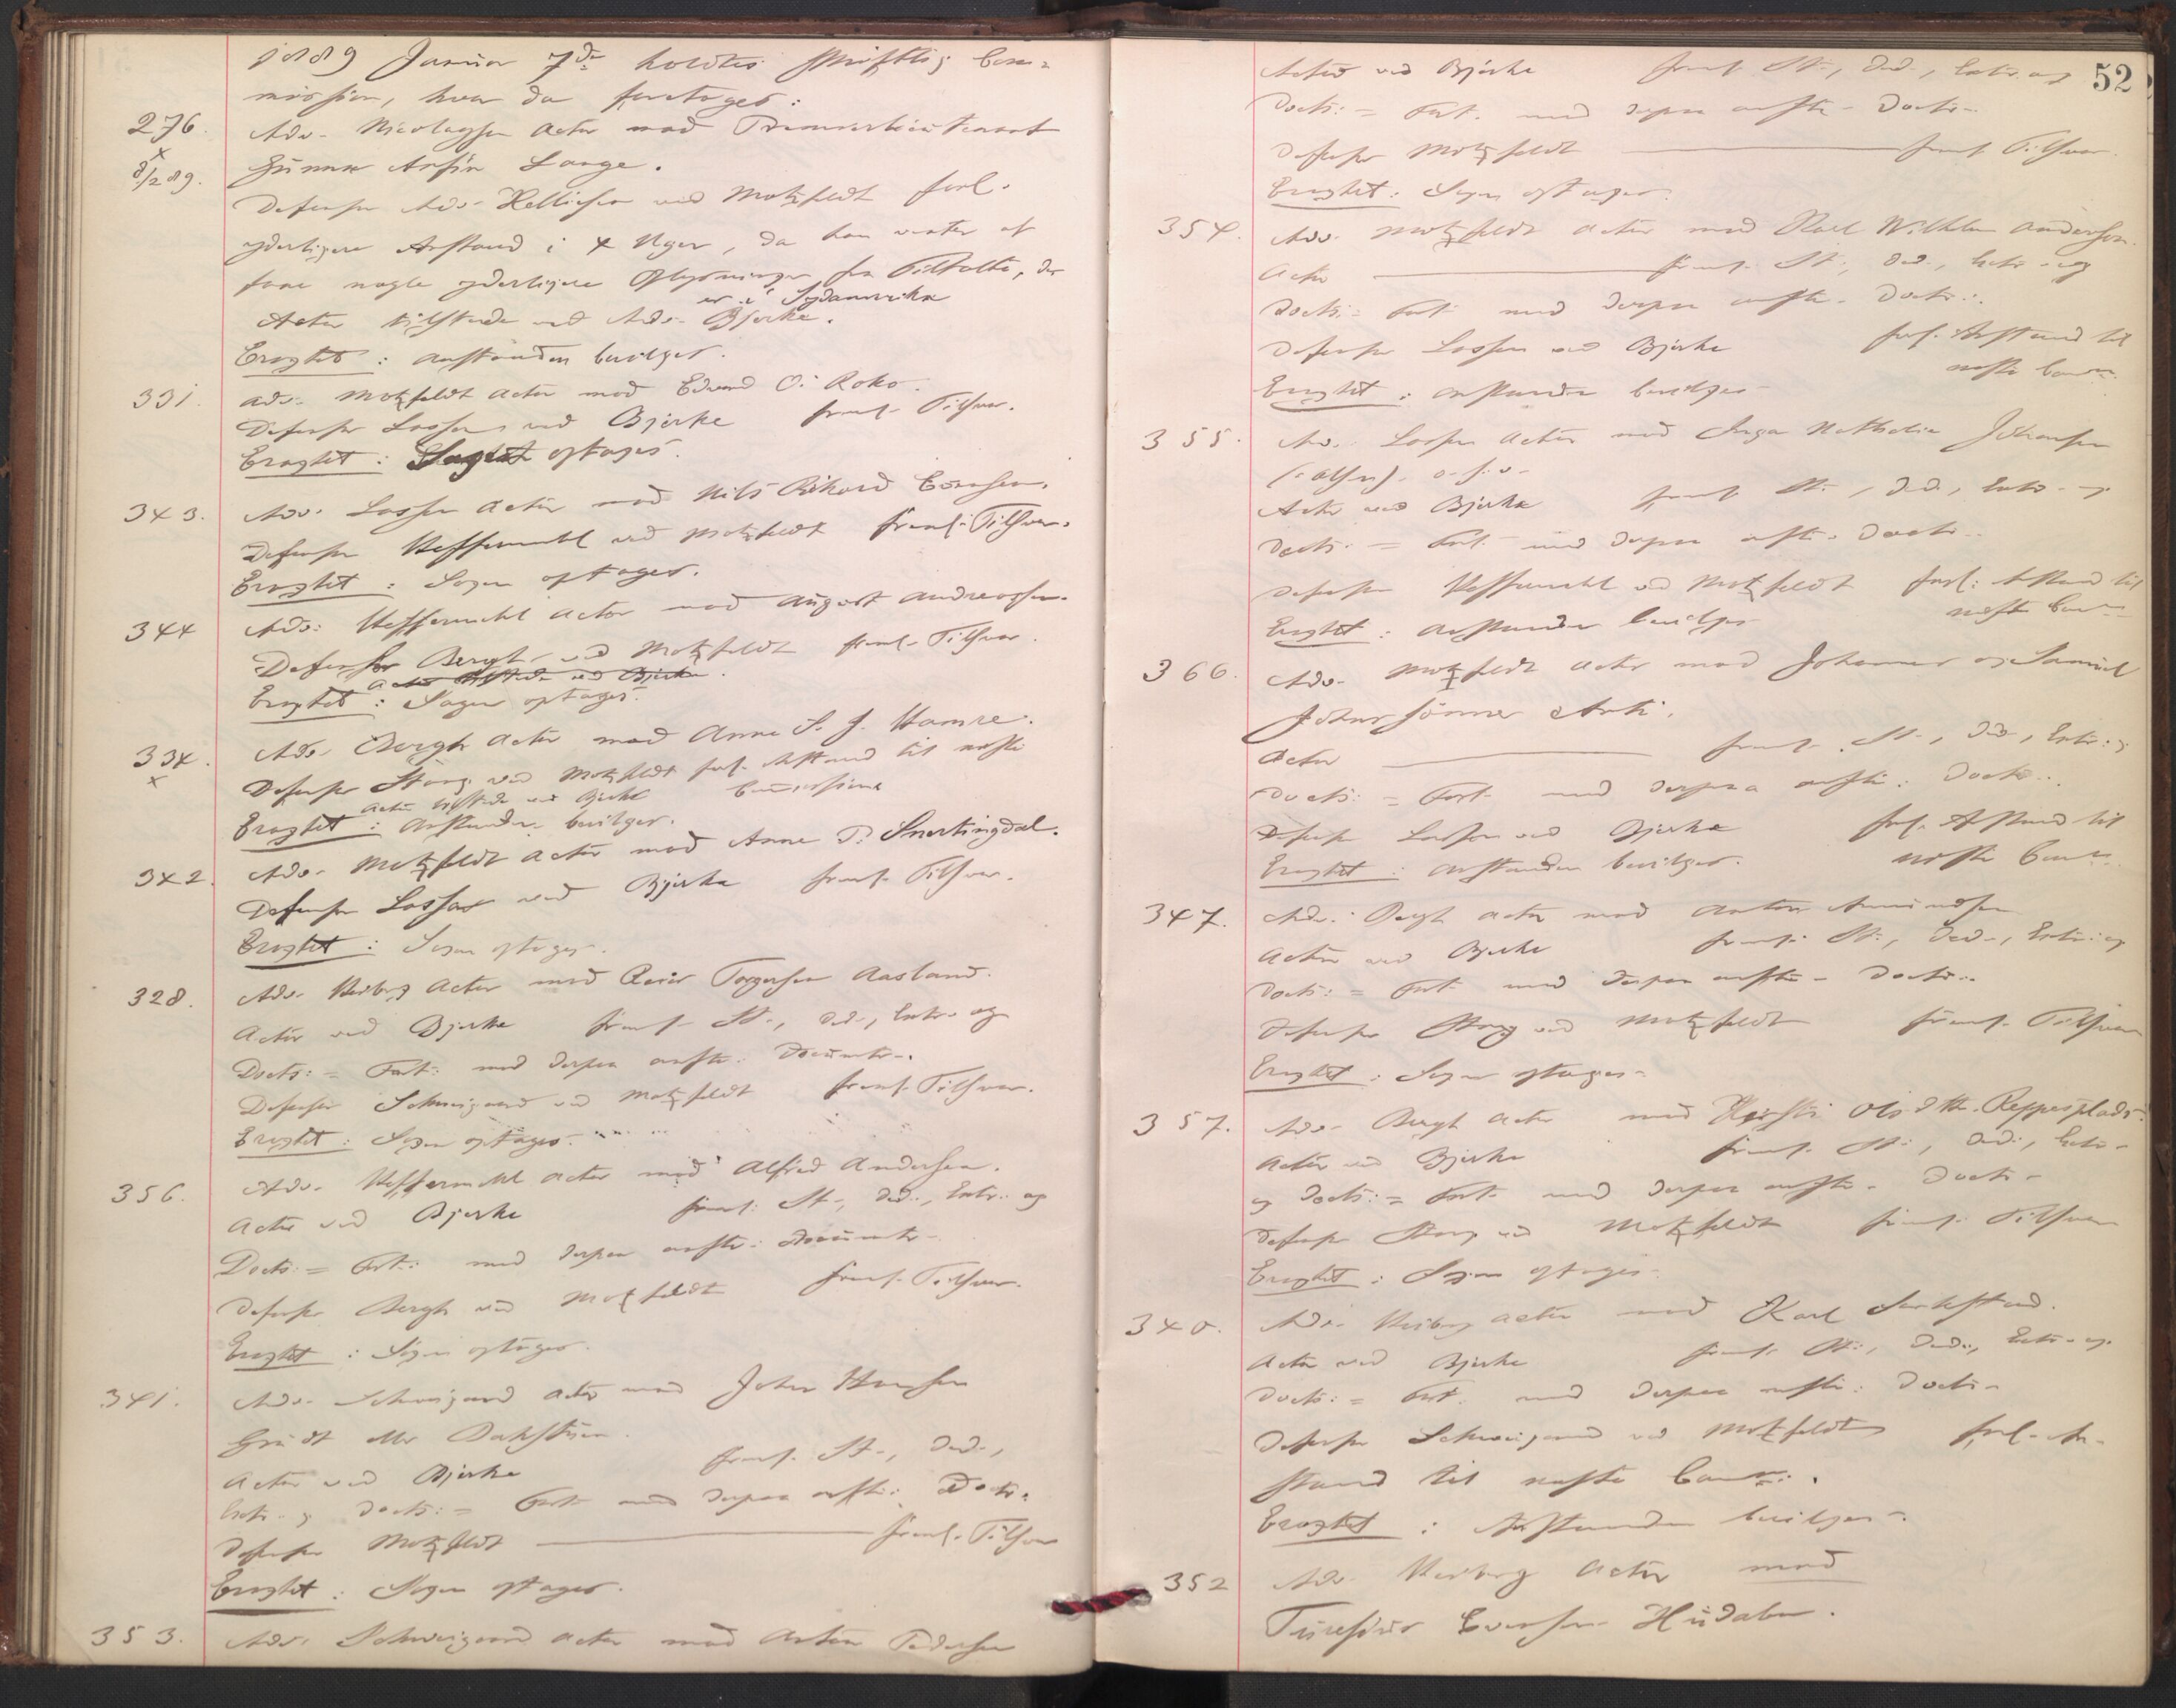 1889 Januar 7de holdtes skriftlig Com-
mission, hvor da foretoges:
276. Adv. Nicolaysen Actor mod Premierlieutenant
x
8/2 89. Gunnar Arfin Lange.
Defensor Adv. Helliesen ved Motzfeldt forl.
yderligere Anstand i 4 Uger, da han venter at
faae nogle yderligere Oplysninger fra Tiltalte, der
er i Sydamerika
Actor tilstede ved Adv. Bjerke.
Eragtet: Anstanden bevilges.
331. Adv. Motzfeldt Actor mod Edvard O. Roko.
Defensor Lassen ved Bjerke freml. Tilsvar.
Eragtet: Sagen optages.
343. Adv. Lassen Actor mod Nils Rikard
Defensor Heffermehl ved Motzfeldt freml. Tilsvar.
Eragtet: Sagen optages.
344 Adv. Heffermehl Actor mod August Andreassen.
Defensor Bergh ved Motzfeldt freml. Tilsvar.
Actor tilstede ved Bjerke.
Eragtet: Sagen optages.
334. Adv. Bergh Actor mod Anne S. J. Hamre.
x
Defensor Stang ved Motzfeldt forl. Anstand til næste
Actor tilstede ved Bjerke Commission
Eragtet: Anstanden bevilges.
342. Adv. Motzfeldt Actor mod Anne P. Snertingdal.
Defensor Lassen ved Bjerke freml. Tilsvar.
Eragtet: Sagen optages.
328. Adv. Heiberg Actor mod Reier Torgersen Aasland.
Actor ved Bjerke freml. St., Ded., Extr. og
Docts: = Fort. med derpaa anførte Documtr.
Defensor Schweigaard ved Motzfeldt freml. Tilsvar.
Eragtet: Sagen optages.
356. Adv. Heffermehl Actor mod Alfred Andersen.
Actor ved Bjerke freml. St., Ded., Extr. og
Docts: = Fort. med derpaa anførte Documtr.
Defensor Bergh ved Motzfeldt freml. Tilsvar.
Eragtet: Sagen optages.
341. Adv. Schweigaard Actor mod Johan Hansen
Grüdt
Actor ved Bjerke freml. St., Ded.,
Extr. og Docts: = Fort. med derpaa anførte Doctr.
Defensor Motzfeldt freml. Tilsvar
Eragtet: Sagen optages.
353. Adv. Schweigaard Actor mod Anton Pedersen
52
Actor ved Bjerke freml. St., Ded., Extr. og
Docts: = Fort. med derpaa anførte Doctr.
Defensor Motzfeldt freml. Tilsvar.
Eragtet: Sagen optages.
354. Adv. Motzfeldt Actor mod Karl Wilhlm Andersen.
Actor freml. St., Ded., Extr. og
Docts: Fort. med derpaa anførte Doctr.
Defensor Lassen ved Bjerke forl. Anstand til
næste Comm.
Eragtet: Anstanden bevilges
355. Adv. Lassen Actor mod Inga Nathalie Johansen
(: Olsen). o. s. v.
Actor ved Bjerke freml. St., Ded., Extr. og
Docts: = Fort. med derpaa anførte Doctr.
Defensor Heffermehl ved Motzfeldt forl. Anstand til
næste Comm.
Eragtet: Anstanden bevilges
366. Adv. Motzfeldt Actor mod Johannes og Samuel
Johnssønner Anti.
Actor freml. St., Ded., Extr. og
Docts: = Fort. med derpaa anførte Doctr.
Defensor Lassen ved Bjerke forl. Anstand til
Eragtet: Anstanden bevilges. næste Comm.
347. Adv. Bergh Actor mod Anton Amundsen
Actor ved Bjerke freml. St., Ded., Extr. og
Docts: = Fort. med derpaa anførte Doctr.
Defensor Stang ved Motzfeldt freml. Tilsvar
Eragtet: Sagen optages.
357. Adv. Bergh Actor mod Kjersti Olsdtr. Reppesplads.
Actor ved Bjerke freml. St., Ded., Extr.
og Docts: = Fort. med derpaa anførte Doctr.
Defensor Stang ved Motzfeldt freml. Tilsvar
Eragtet: Sagen optages.
340. Adv. Heiberg Actor mod Karl
Actor ved Bjerke freml. St., Ded., Extr. og
Docts: = Fort. med derpaa anførte Doctr.
Defensor Schweigaard ved Motzfeldt forl. An-
stand til næste Comm.
Eragtet: Anstanden bevilges.
352 Adv. Heiberg Actor mod
Evensen Hüdalen.